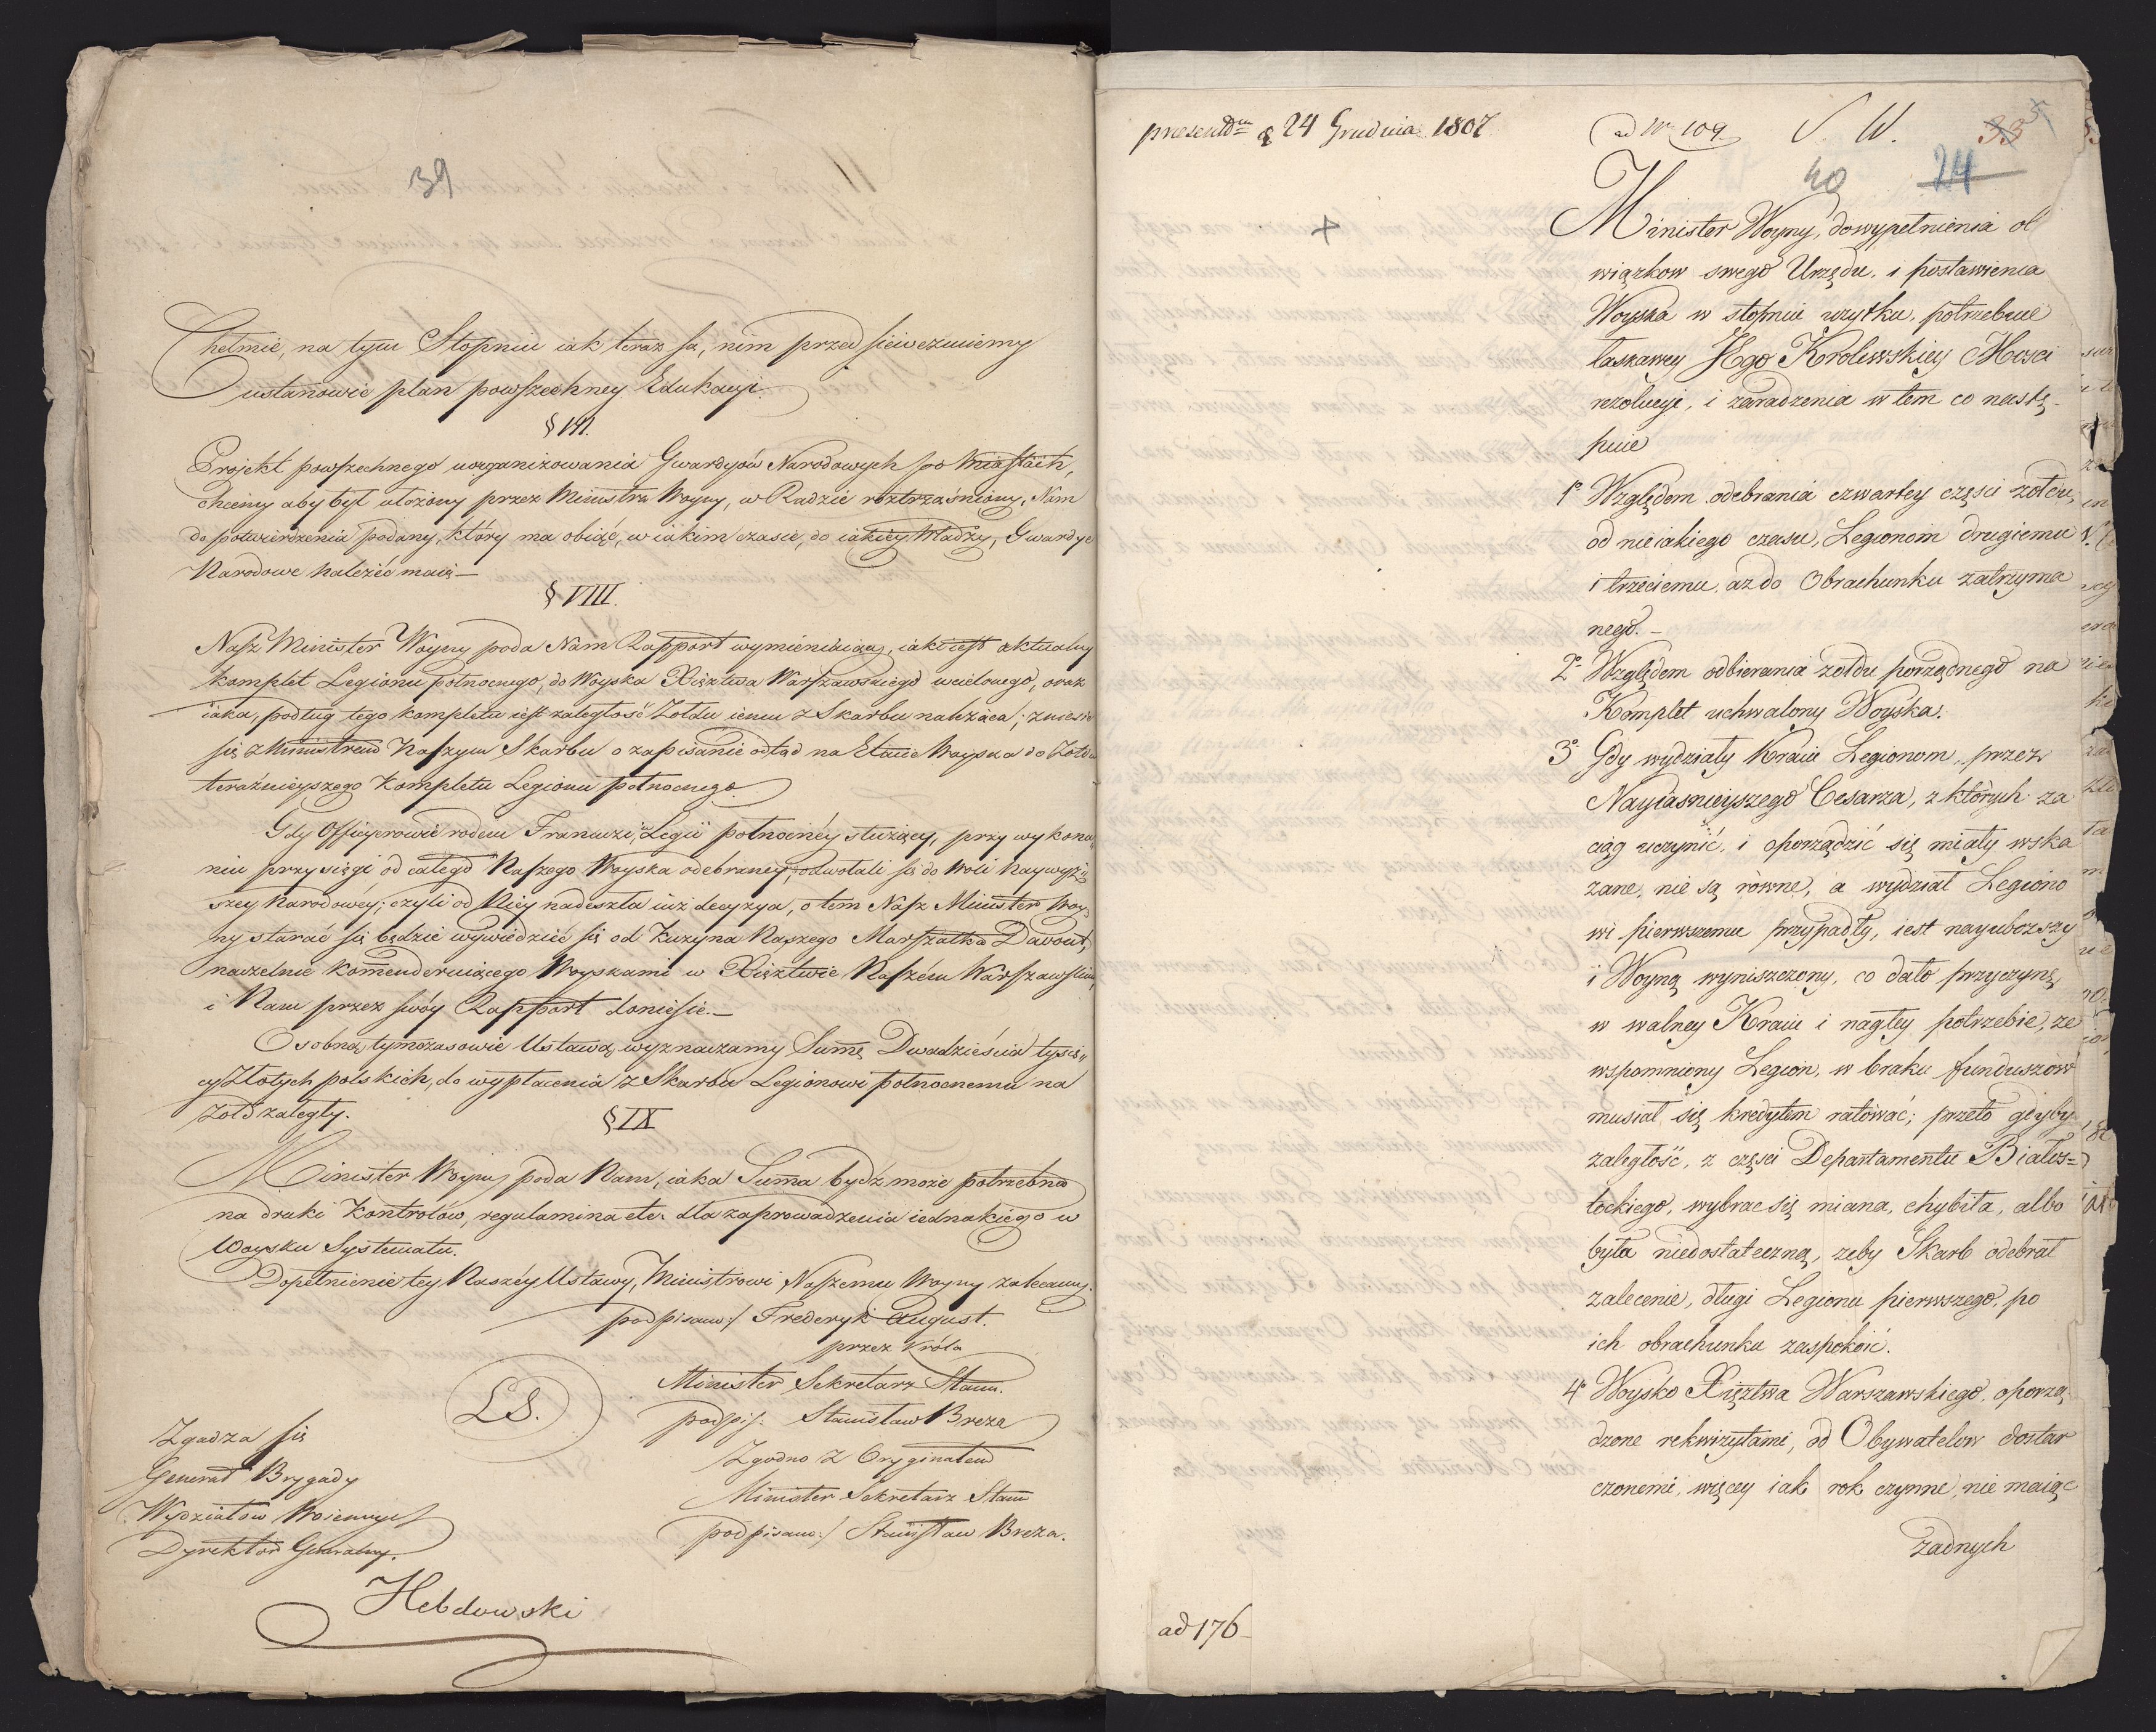 39
Chełmie, na tym Stopniu iak teraz są, nim przed sięwezmiemy
ustanowić plan powszechney Edukacyi.
§ VII.
Projekt powszechnego uorganizowania Gwardyów Narodowych po Miastach,
chcemy aby był ułożony przez Ministra Woyny, w Radzie roztrząśniony, Nam
do potwierdzenia podany, który ma obiąć, w iakim czasie, do iakiey Władzy, Gwardye
Narodowe należéć maią —
§ VIII.
Nasz Minister Woyny poda Nam Rapport wymieniaiący, iaki iest aktualny
komplet Legionu północnego, do Woyska Xięztwa Warszawskiego wcielonego, oraz
iaka, podług tego kompletu iest zaległość Żołdu iemu z Skarbu należąca; zniesie
się z Ministrem Naszym Skarbu o zapisanie odtąd na Etacie Woyska do Żołdu
teraźnieyszego Kompletu Legionu północnego.
Gdy Officyerowie rodem Francuzi, w Legii północnéy służący, przy wykona„
niu przysięgi od całego Naszego Woyska odebraney, odwołali się do Woli Naywyż„
szey Narodowéy; czyli od Niey nadeszła iuż decyzya, o tem Nasz Minister Woy„
ny starać się będzie wywiedzieć się od Kuzyna Naszego Marszałka Davout,
naczelnie kommenderuiącego Woyskami w Xięztwie Naszém Warszawskim,
i Nam przez swóy Rapport doniesie. —
Osobną, tymczasowie Ustawą, wyznaczamy Summę Dwadzieścia tysię„
cy Złotych polskich, do wypłacenia z Skarbu Legionowi północnemu na
Żołd zaległy.
§ IX
Minister Woyny poda Nam, iaka Summa bydź może potrzebna
na druki Kontrolów, regulamina etc. dla zaprowadzenia iednakiego w
Woysku Systematu.
Dopełnienie tey Naszéy Ustawy, Ministrowi Naszemu Woyny zalecamy.
podpisano:/ Frederyk August.
przez Króla
Minister Sekretarz Stanu.
podpis: Stanisław Breza
L.S.
Zgodno z Oryginałem
Minister Sekretarz Stanu
podpisano:/ Stanisław Breza.
Zgadza się
Generał Brygady
Wydziałów Woiennych
Dyrektor Generalny.
Hebdowski
24 Grudnia 1807
ad Nr 109.
40
24
Minister Woyny, do wypełnienia ob
wiązkow swego Urzędu, i postawienia
Woyska w stopniu uzytku, potrzebuie
łaskawey Jego Krolewskiey Mosci
rezolucyi, i zaradzenia w tem co nastę-
puie
1º Względem odebrania czwartey częsci żołdu,
od nieiakiego czasu, Legionom drugiemu
i trzeciemu, az do Obrachunku zatrzyma
nego. —
2º Względem odbierania żołdu porządnego na
Komplet uchwalony Woyska.
3º Gdy wydziały Kraiu Legionom, przez
Nayiasnieyszego Cesarza, z których za
ciąg uczynić, i oporządzić się miały wska
zane, nie są rowne, a wydział Legiono
wi pierwszemu przypadły, iest nayubozszy
i Woyną wyniszczony, co dało przyczynę
w walney Kraiu i nagłey potrzebie, ze
wspomniony Legion, w braku funduszow
musiał się kredytem ratować; przeto gdyby
zaległość, z częsci Departamentu Białos=
tockiego, wybrac się miana, chybiła, albo
była niedostateczną, zeby Skarb odebrał
zalecenie, długi Legionu pierwszego, po
ich obrachunku zaspokoić.
4º Woysko Xięztwa Warszawskiego, oporzą
dzone rekwizytami, od Obywatelow dostar
czonemi, więcey iak rok czynne, nie maiąc
żadnych
ad 176